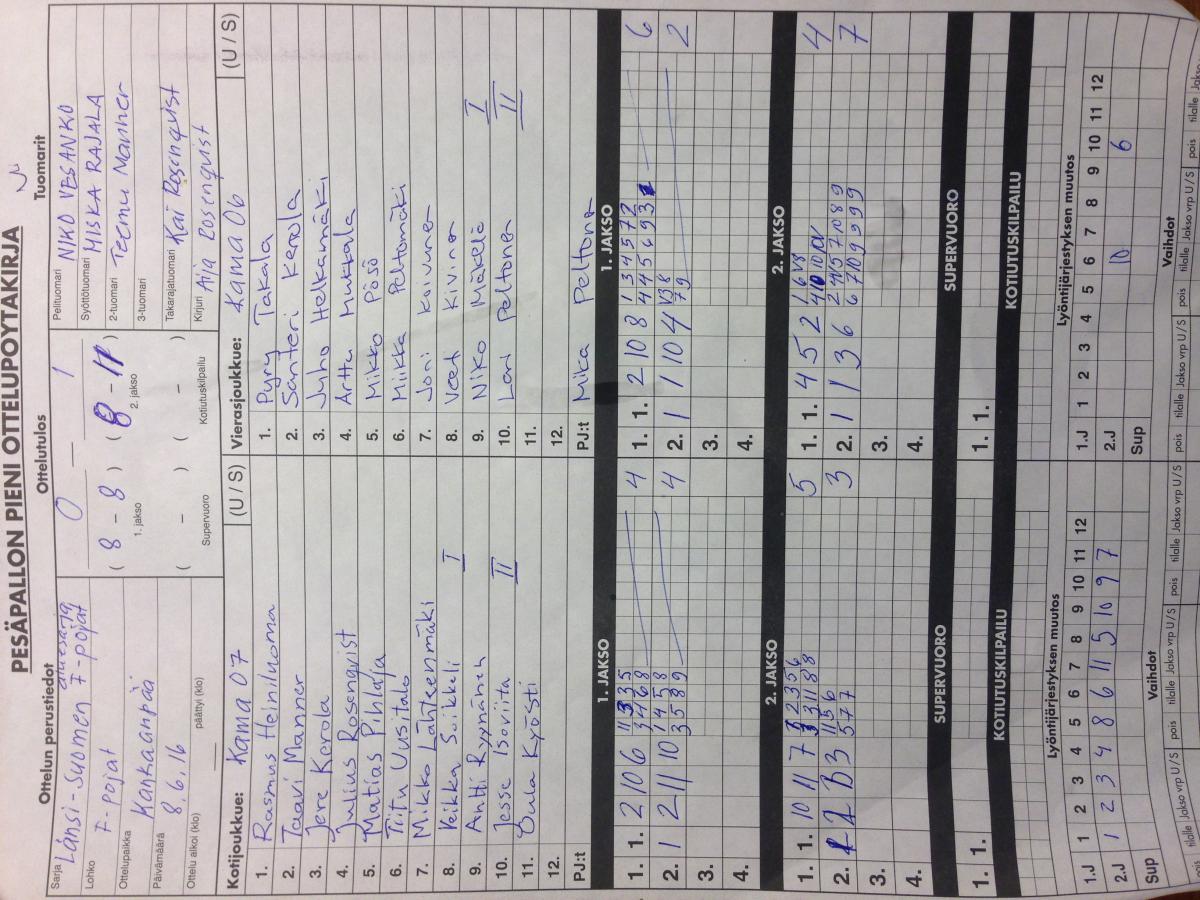 PESÄPALLON PIENI OTTELUPÖYTÄKIRJA
Ottelun perustiedot
Sarja Länsi-Suomen aluesarja F-pojat
Lohko F-pojat
Ottelupaikka Kankaanpää
Päivämäärä 8.6.16
Ottelu alkoi (klo) päättyi (klo)
Ottelutulos
0 – 1
( 8 – 8 ) ( 8 – 11 )
1. jakso 2. jakso
( – ) ( – )
Supervuoro Kotiutuskilpailu
Tuomarit
Pelituomari NIKO VESANKO
Syöttötuomari MISKA RAJALA
2-tuomari Teemu Manner
3-tuomari
Takarajatuomari Kai Rosenqvist
Kirjuri Aija Rosenqvist
Kotijoukkue: Kama 07 (U / S)
1. Rasmus Heiniluoma
2. Taavi Manner
3. Jere Kerola
4. Julius Rosenqvist
5. Matias Pihlaja
6. Tiitu Uusitalo
7. Mikko Lähteenmäki
8. Veikka Soikkeli I
9. Antti Ryynänen
10. Jesse Isoviita II
11. Oula Kyösti
12.
PJ:t
Vierasjoukkue: Kama 06 (U / S)
1. Pyry Takala
2. Santeri Kerola
3. Juho Helkamäki
4. Arttu Mukkala
5. Mikko Pösö
6. Miikka Peltomäki
7. Joni Koivunen
8. Veeti Kivinen
9. Niko Mäkelä I
10. Lari Peltonen II
11.
12.
PJ:t Mika Peltonen
1. JAKSO
1. 1. 2 10 6 4
2. 1 2 11 10 4
3.
4.
1. JAKSO
1. 1. 2 10 8 6
2. 1 10 4 2
3.
4.
2. JAKSO
1. 1. 10 11 7 5
2. 3
3.
4.
2. JAKSO
1. 1. 4 5 2 4
2. 1 3 6 7
3.
4.
SUPERVUORO
1. 1.
SUPERVUORO
1. 1.
KOTIUTUSKILPAILU
KOTIUTUSKILPAILU
Lyöntijärjestyksen muutos
1.J 1 2 3 4 5 6 7 8 9 10 11 12
2.J 1 2 3 4 8 6 11 5 10 9 7
Sup
Lyöntijärjestyksen muutos
1.J 1 2 3 4 5 6 7 8 9 10 11 12
2.J 10 6
Sup
Vaihdot
pois tilalle Jakso vrp U / S pois tilalle Jakso vrp U / S
Vaihdot
pois tilalle Jakso vrp U / S pois tilalle Jakso vrp U / S